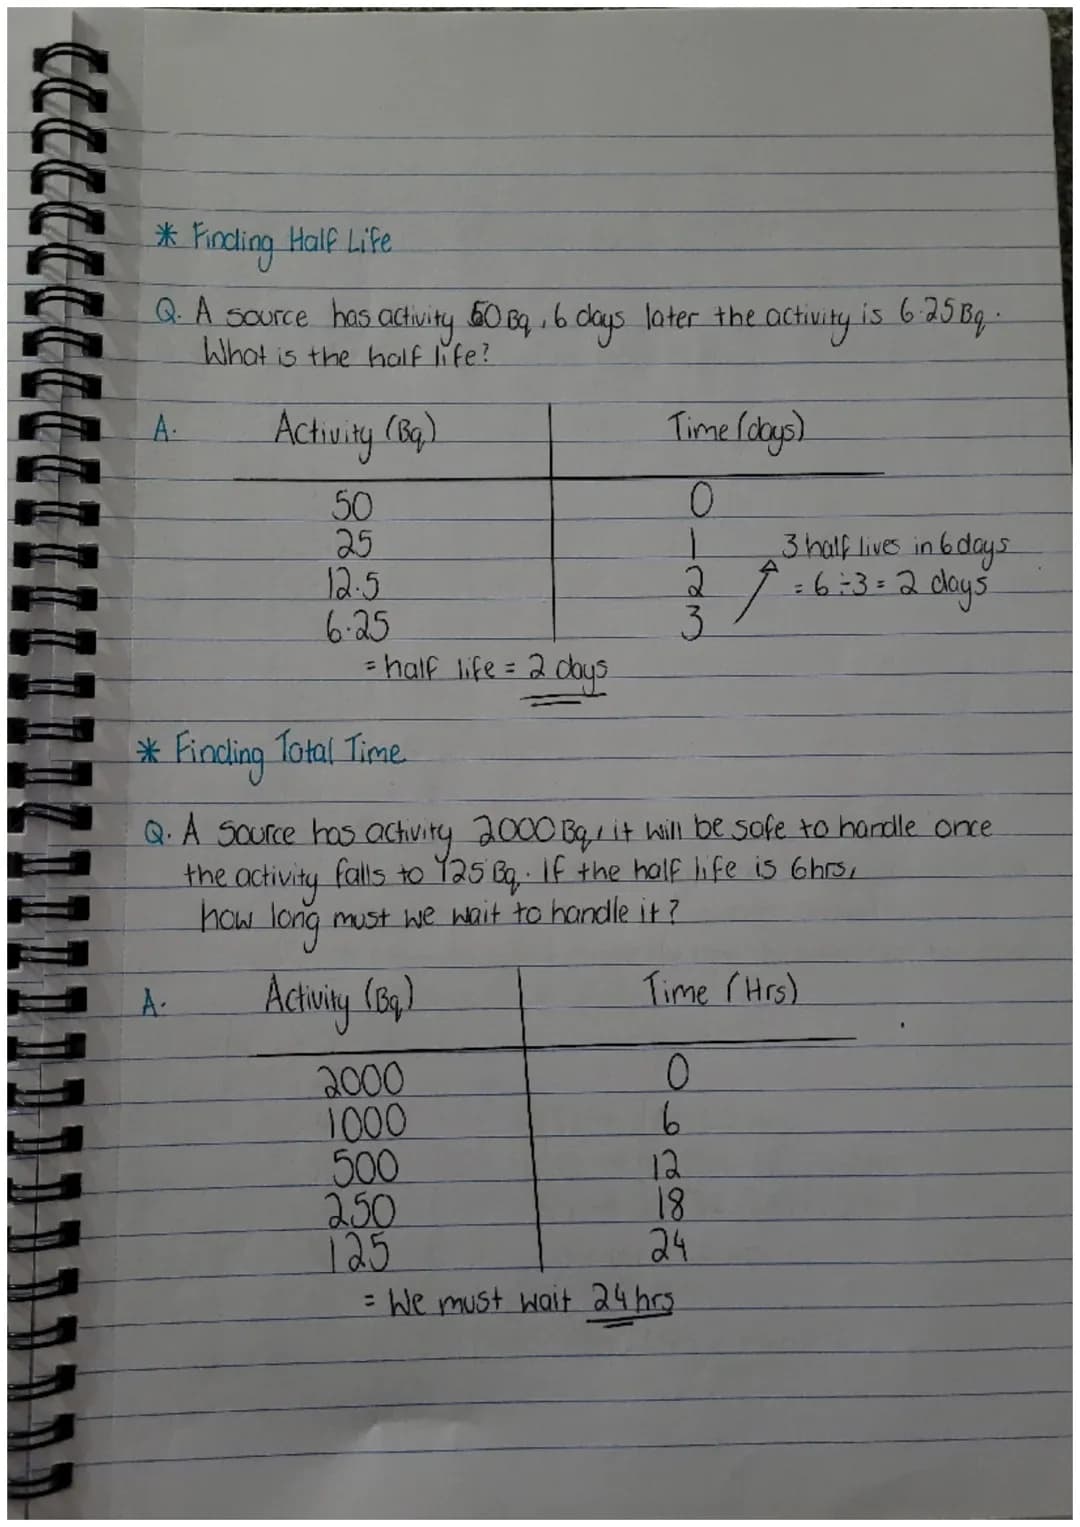 * Finding Half Life
Q. A source has activity 50 Bq, 6 days later the activity is 6.25 Bq.
What is the half life?
A. Activity (Bq) Time (days)
50 0
25 1 3 half lives in 6 days
12.5 2 = 6÷3 = 2 days
6.25 3
= half life = 2 days
* Finding Total Time
Q. A source has activity 2000 Bq, it will be safe to handle once
the activity falls to 125 Bq. If the half life is 6hrs,
how long must we wait to handle it?
A. Activity (Bq) Time (Hrs)
2000 0
1000 6
500 12
250 18
125 24
= We must wait 24 hrs